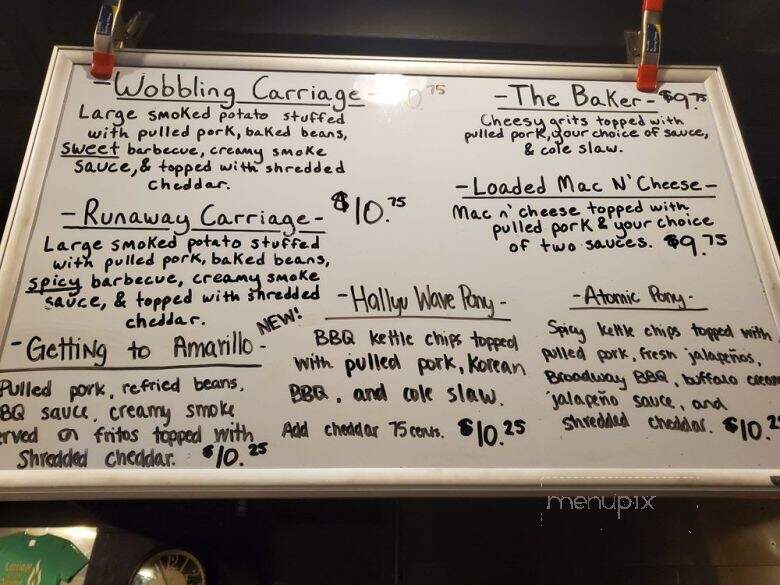 -Wobbling Carriage-
Large smoked potato stuffed
with pulled pork, baked beans,
sweet barbecue, creamy smoke
sauce, & topped with shredded
cheddar.
-Runaway Carriage- $10.75
Large smoked potato stuffed
with pulled pork, baked beans,
spicy barbecue, creamy smoke
sauce, & topped with shredded
cheddar.
NEW!
-Getting to Amarillo-
Pulled pork, refried beans,
BQ sauce, creamy smoke
erved on fritos topped with
Shredded cheddar. $10.25
-The Baker- $9.75
Cheesy grits topped with
pulled pork, your choice of sauce,
& cole slaw.
-Loaded Mac N' Cheese-
Mac n' cheese topped with
pulled pork & your choice
of two sauces. $9.75
-Hallyu Wave Pony-
BBQ kettle chips topped
with pulled pork, Korean
BBQ, and cole slaw.
Add cheddar 75 cents. $10.25
-Atomic Pony-
Spicy kettle chips topped with
pulled pork, fresh jalapeños,
Broadway BBQ, buffalo cream
jalapeño sauce, and
shredded cheddar. $10.2
menupix
Carriage